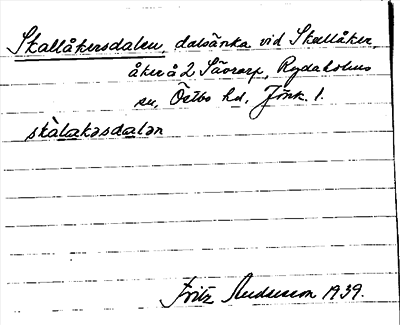 Skallåkersdalen, dalsänka vid Skallåker,
åker å 2 Sävrarp, Rydaholms
sn, Östbo hd, Jönk. l.
skàlakəsdalən
Fritz Andersson 1939.